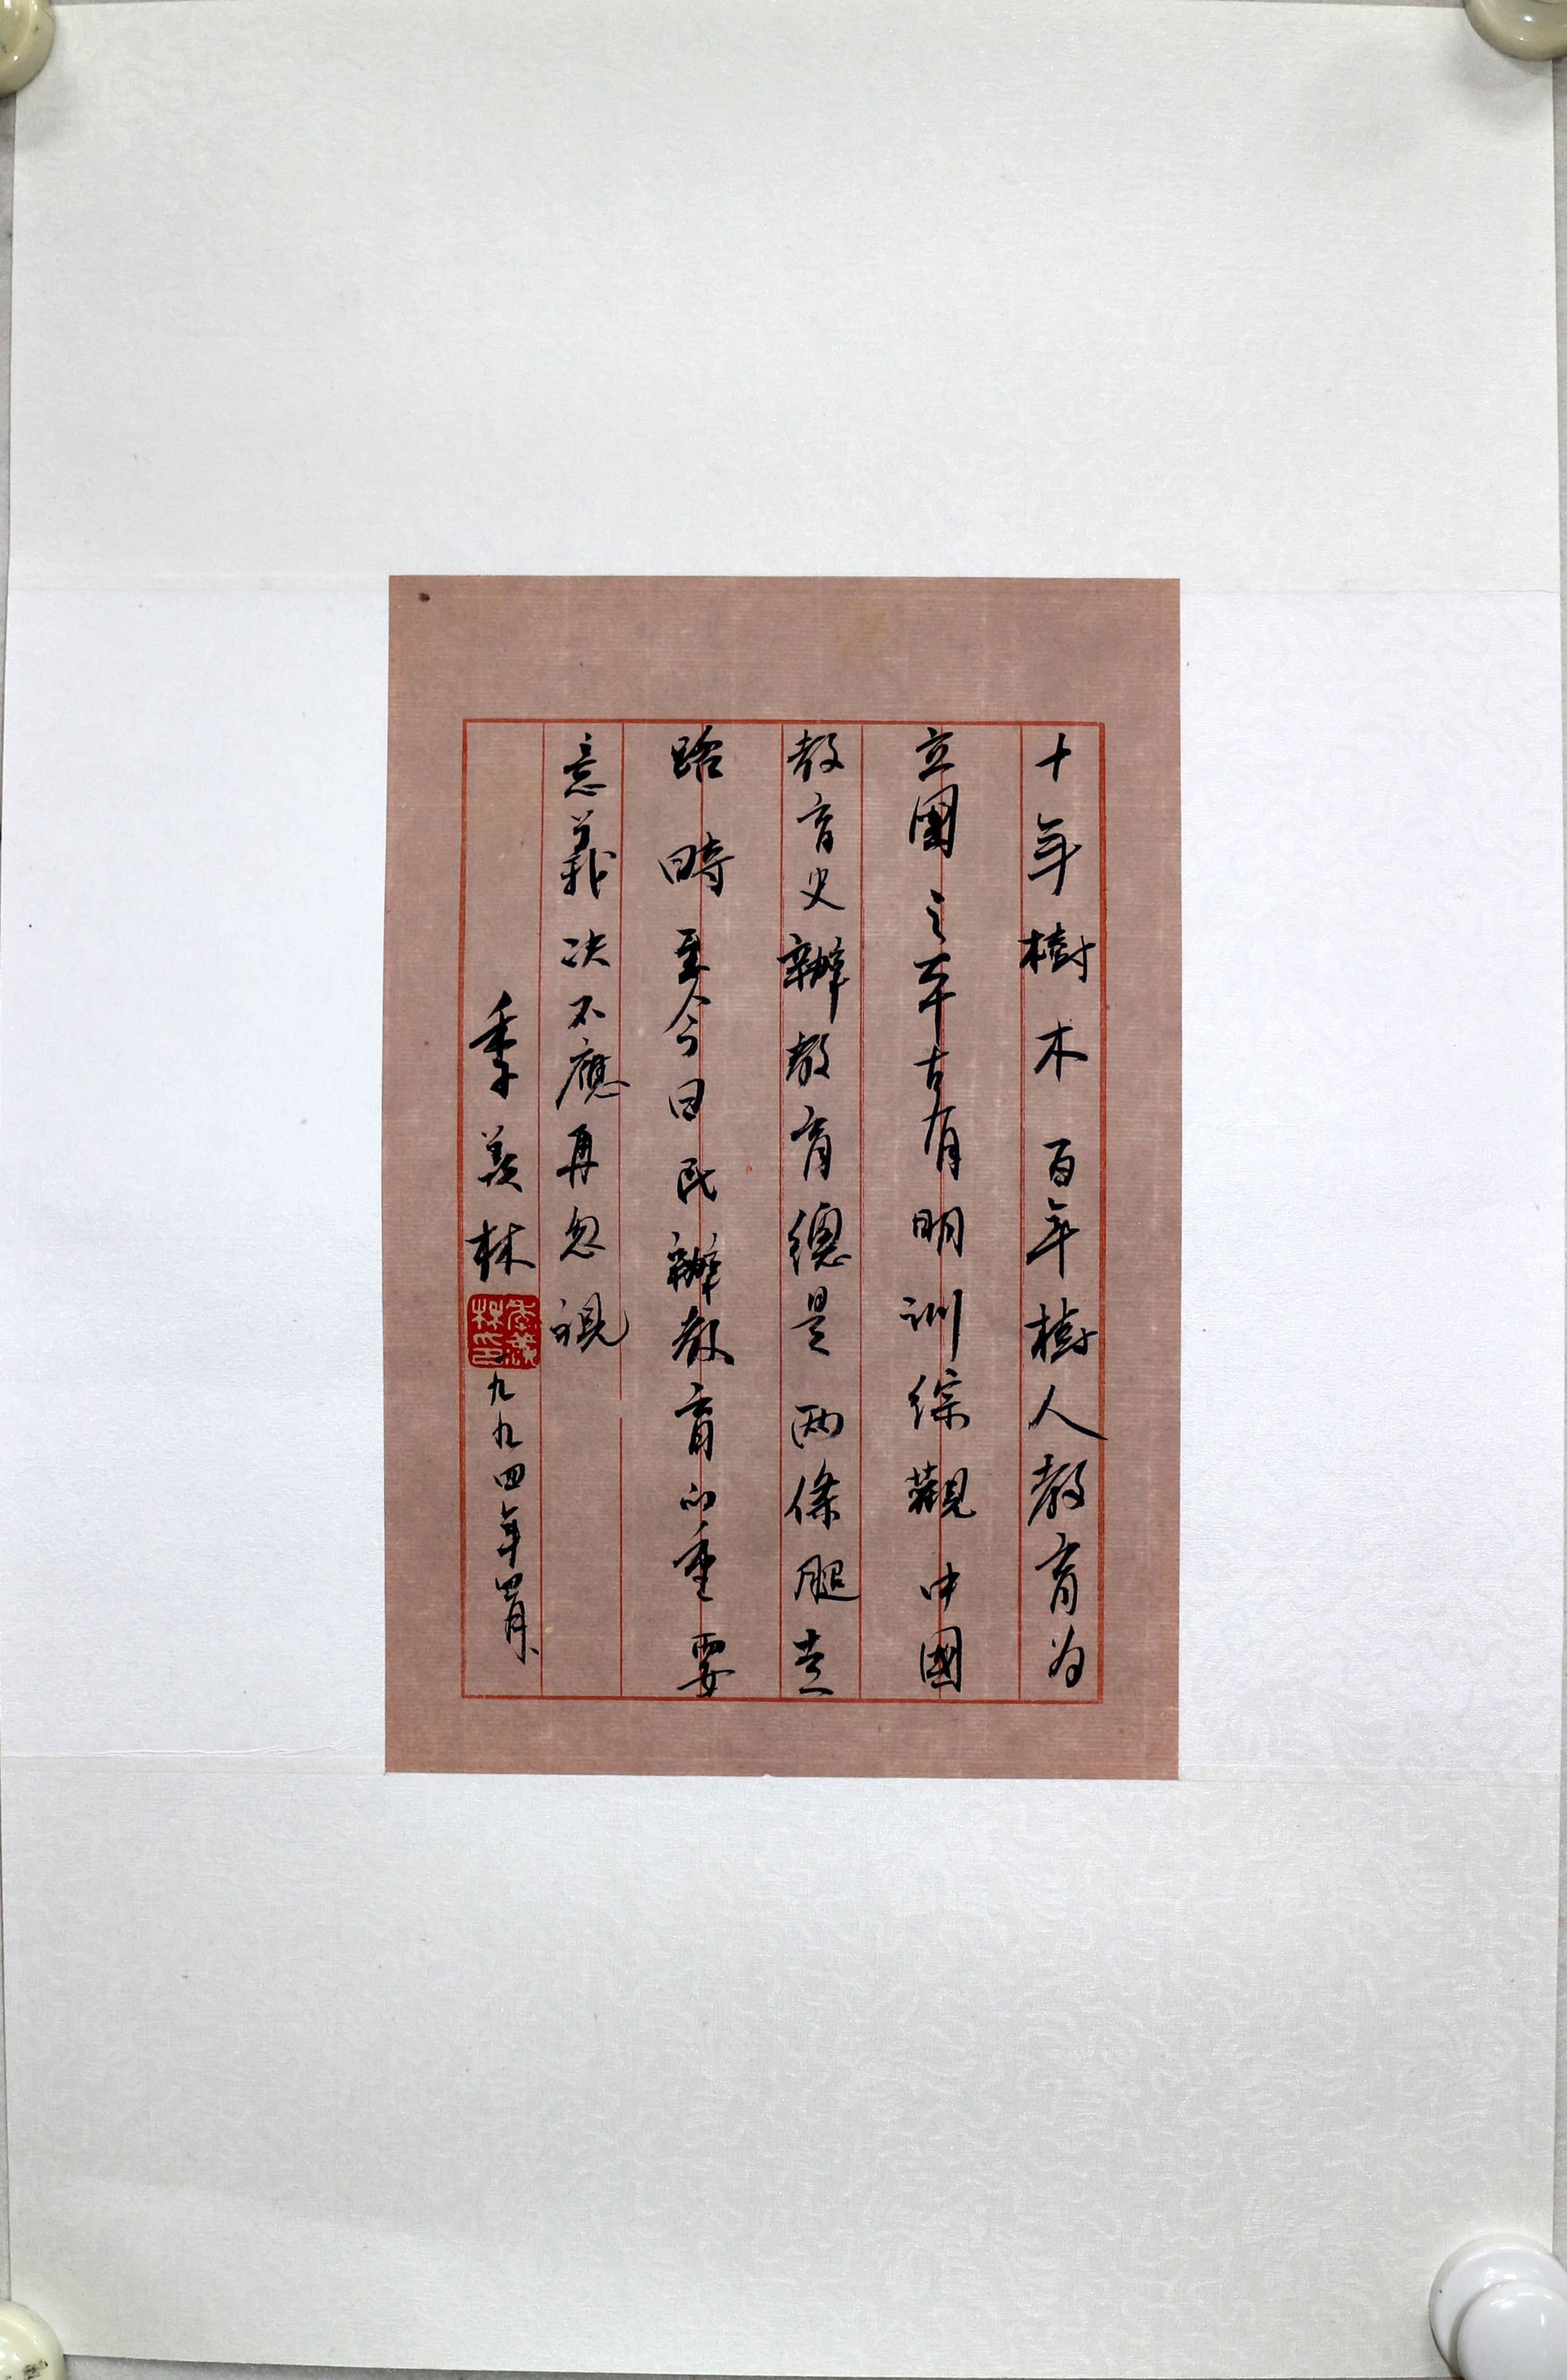 十年樹木百年樹人教育为
立國之本古有明訓綜觀中國
教育史辦教育總是两條腿走
路時至今日民辦教育的重要
意義决不應再忽視
季羡林
季羡林印
一九九四年四月